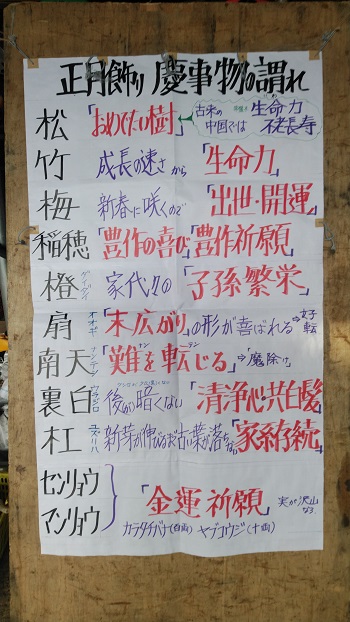 正月飾り慶事物の謂れ
松 「おめでたい樹」 古来の中国では 常緑で 生命力 不老長寿
竹 成長の速さから 「生命力」
梅 新春に咲くので 「出世・開運」
稲穂 「豊作の喜び」「豊作祈願」
橙 ダイダイ 家代々の 「子孫繁栄」
扇 オオギ 「末広がり」の形が喜ばれる⇒好転
南天 ナンテン 「難を転じる」 ナン テン ⇒「魔除け」
裏白 ウラジロ 後ろ暗くない 「清浄心共白髪」
杠 ユズリハ 新芽が伸びると古い葉が落ちる 「家系存続」
センリョウ
マンリョウ 「金運祈願」 実が沢山なる
カラタチバナ(百両) ヤブコウジ(十両)